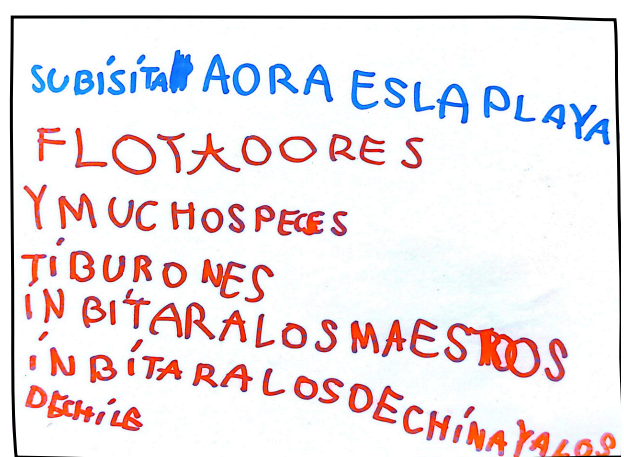 SUBÍSÍTA AORA ESLA PLAYA
FLOTADORES
Y MUCHOSPECES
TÍBURONES
ÍNBÍTARALOSMAESTROS
ÍNBÍTARALOSDECHÍNAYALOS
DECHÍLE